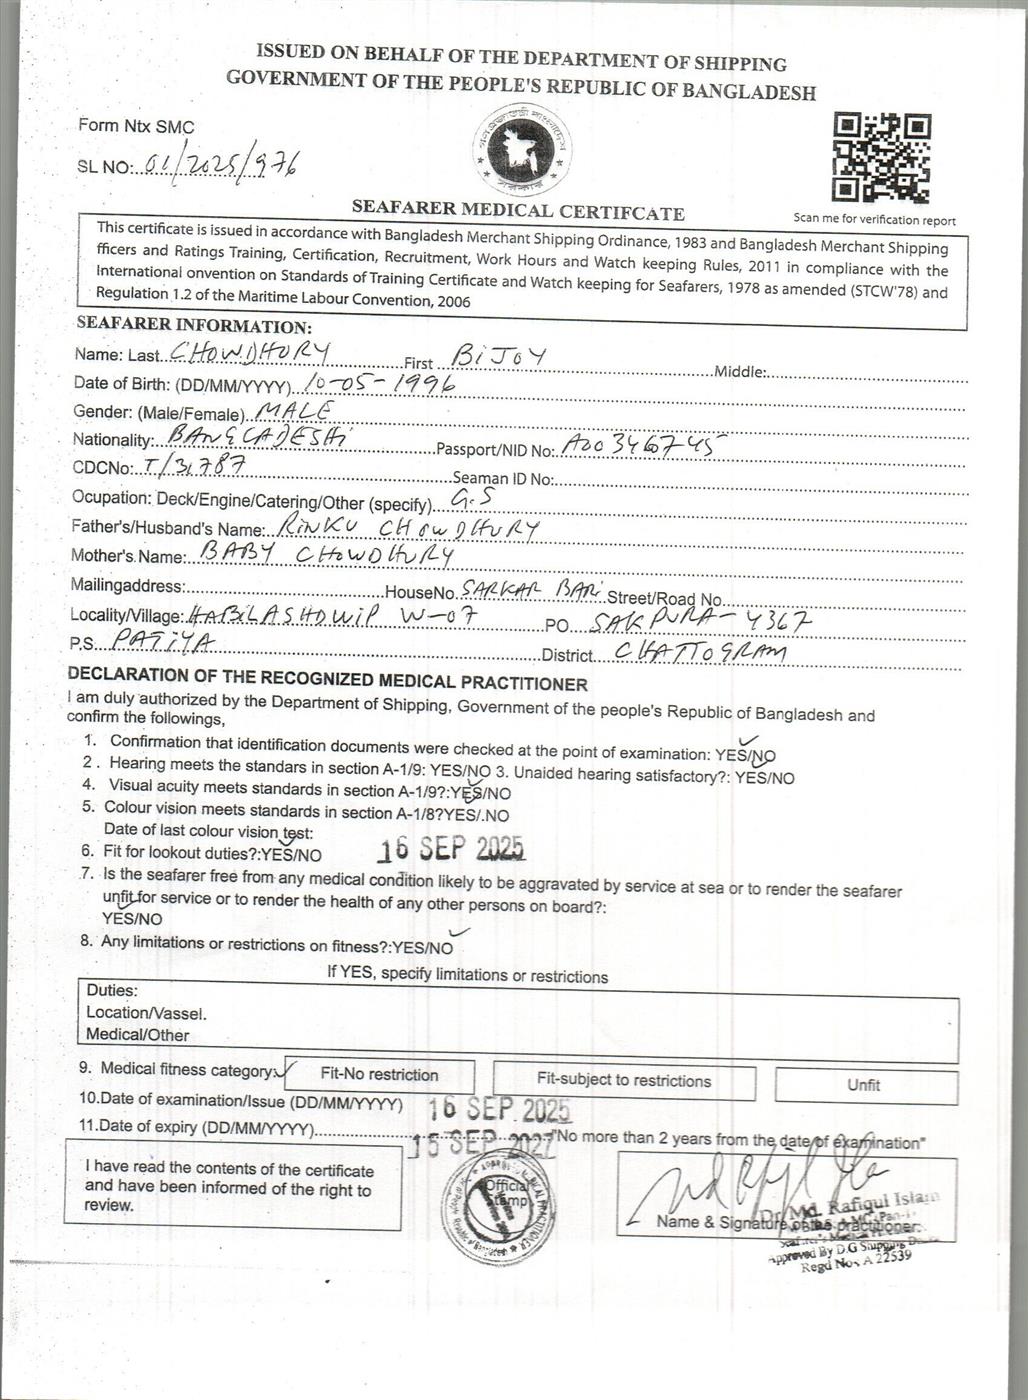 ISSUED ON BEHALF OF THE DEPARTMENT OF SHIPPING
GOVERNMENT OF THE PEOPLE'S REPUBLIC OF BANGLADESH
Form Ntx SMC
SL NO: 01/2025/976
Scan me for verification report
SEAFARER MEDICAL CERTIFCATE
This certificate is issued in accordance with Bangladesh Merchant Shipping Ordinance, 1983 and Bangladesh Merchant Shipping
fficers and Ratings Training, Certification, Recruitment, Work Hours and Watch keeping Rules, 2011 in compliance with the
International onvention on Standards of Training Certificate and Watch keeping for Seafarers, 1978 as amended (STCW'78) and
Regulation 1.2 of the Maritime Labour Convention, 2006
SEAFARER INFORMATION:
Name: Last CHOWDHURY First BIJOY Middle:
Date of Birth: (DD/MM/YYYY) 10-05-1996
Gender: (Male/Female) MALE
Nationality: BANGLADESHI Passport/NID No: A00346745
CDCNo: T/31787 Seaman ID No:
Ocupation: Deck/Engine/Catering/Other (specify) G.S
Father's/Husband's Name: RINKU CHOWDHURY
Mother's.Name: BABY CHOWDHURY
Mailingaddress: HouseNo SARKAR BARI Street/Road No
Locality/Village: HABILASHDWIP W-07 PO SAKPURA-4367
P.S. PATIYA District CHATTOGRAM
DECLARATION OF THE RECOGNIZED MEDICAL PRACTITIONER
I am duly authorized by the Department of Shipping, Government of the people's Republic of Bangladesh and
confirm the followings,
1. Confirmation that identification documents were checked at the point of examination: YES/NO
2 . Hearing meets the standars in section A-1/9: YES/NO 3. Unaided hearing satisfactory?: YES/NO
4. Visual acuity meets standards in section A-1/9?:YES/NO
5. Colour vision meets standards in section A-1/8?YES/.NO
Date of last colour vision test:
6. Fit for lookout duties?:YES/NO 16 SEP 2025
7. Is the seafarer free from any medical condition likely to be aggravated by service at sea or to render the seafarer
unfit for service or to render the health of any other persons on board?:
YES/NO
8. Any limitations or restrictions on fitness?:YES/NO
If YES, specify limitations or restrictions
Duties:
Location/Vassel.
Medical/Other
9. Medical fitness category: Fit-No restriction Fit-subject to restrictions Unfit
10.Date of examination/Issue (DD/MM/YYYY) 16 SEP 2025
11.Date of expiry (DD/MM/YYYY) 15 SEP 2027 "No more than 2 years from the date of examination"
I have read the contents of the certificate
and have been informed of the right to
review.
Official
Stamp
Dr. Md. Rafiqul Islam
Name & Signature of the practitioner:
Approved By D.G Shipping
Regd No. A 22539